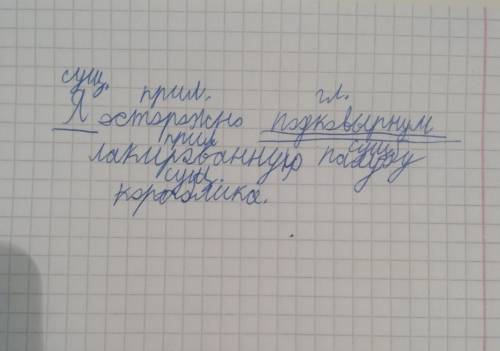 сущ. прил. гл.
Я осторожно подковырнул
прил. сущ.
лакированную палубу
сущ.
кораблика.